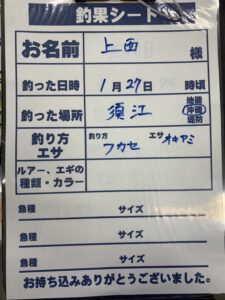 釣果シート
お名前 上西 様
釣った日時 1月27日 時頃
釣った場所 須江 地磯 沖磯 堤防
釣り方 エサ 釣り方 フカセ エサ オキアミ
ルアー、エギの種類・カラー
魚種 サイズ
魚種 サイズ
魚種 サイズ
お持ち込みありがとうございました。